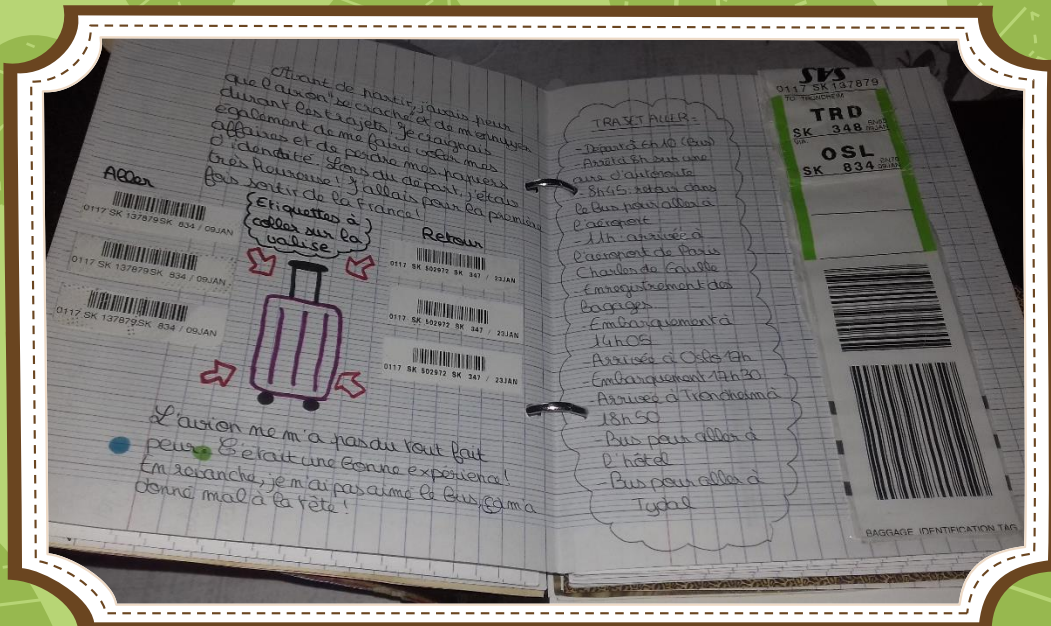 Avant de partir, j'avais peur
que l'avion se crache et de m'ennuyer
durant les trajets, je craignais
également de me faire voler mes
affaires et de perdre mes papiers
d'identité. Lors du départ, j'étais
très heureuse ! J'allais pour la première
fois sortir de la France !
Aller
0117 SK 137879 SK 834 / 09JAN
0117 SK 137879 SK 834 / 09JAN
0117 SK 137879 SK 834 / 09JAN
Etiquettes à
coller sur la
valise
Retour
0117 SK 502972 SK 347 / 23JAN
0117 SK 502972 SK 347 / 23JAN
0117 SK 502972 SK 347 / 23JAN
L'avion ne m'a pas du tout fait
peur. C'était une bonne expérience !
En revanche, je n'ai pas aimé le bus, ça m'a
donné mal à la tête !
TRAJET ALLER :
- Départ à 6h10 (Bus)
- Arrêt à 8h sur une
aire d'autoroute
- 8h45 : retour dans
le bus pour aller à
l'aéroport
- 11h : arrivée à
l'aéroport de Paris
Charles de Gaulle
- Enregistrement des
bagages
- Embarquement à
14h05
- Arrivée à Oslo 17h
- Embarquement 17h30
- Arrivée à Trondheim à
18h50
- Bus pour aller à
l'hôtel
- Bus pour aller à
Tydal
SAS
0117 SK 137879
TO TRONDHEIM
TRD
SK 348 09JAN
VIA
OSL
SK 834 09JAN
BAGGAGE IDENTIFICATION TAG